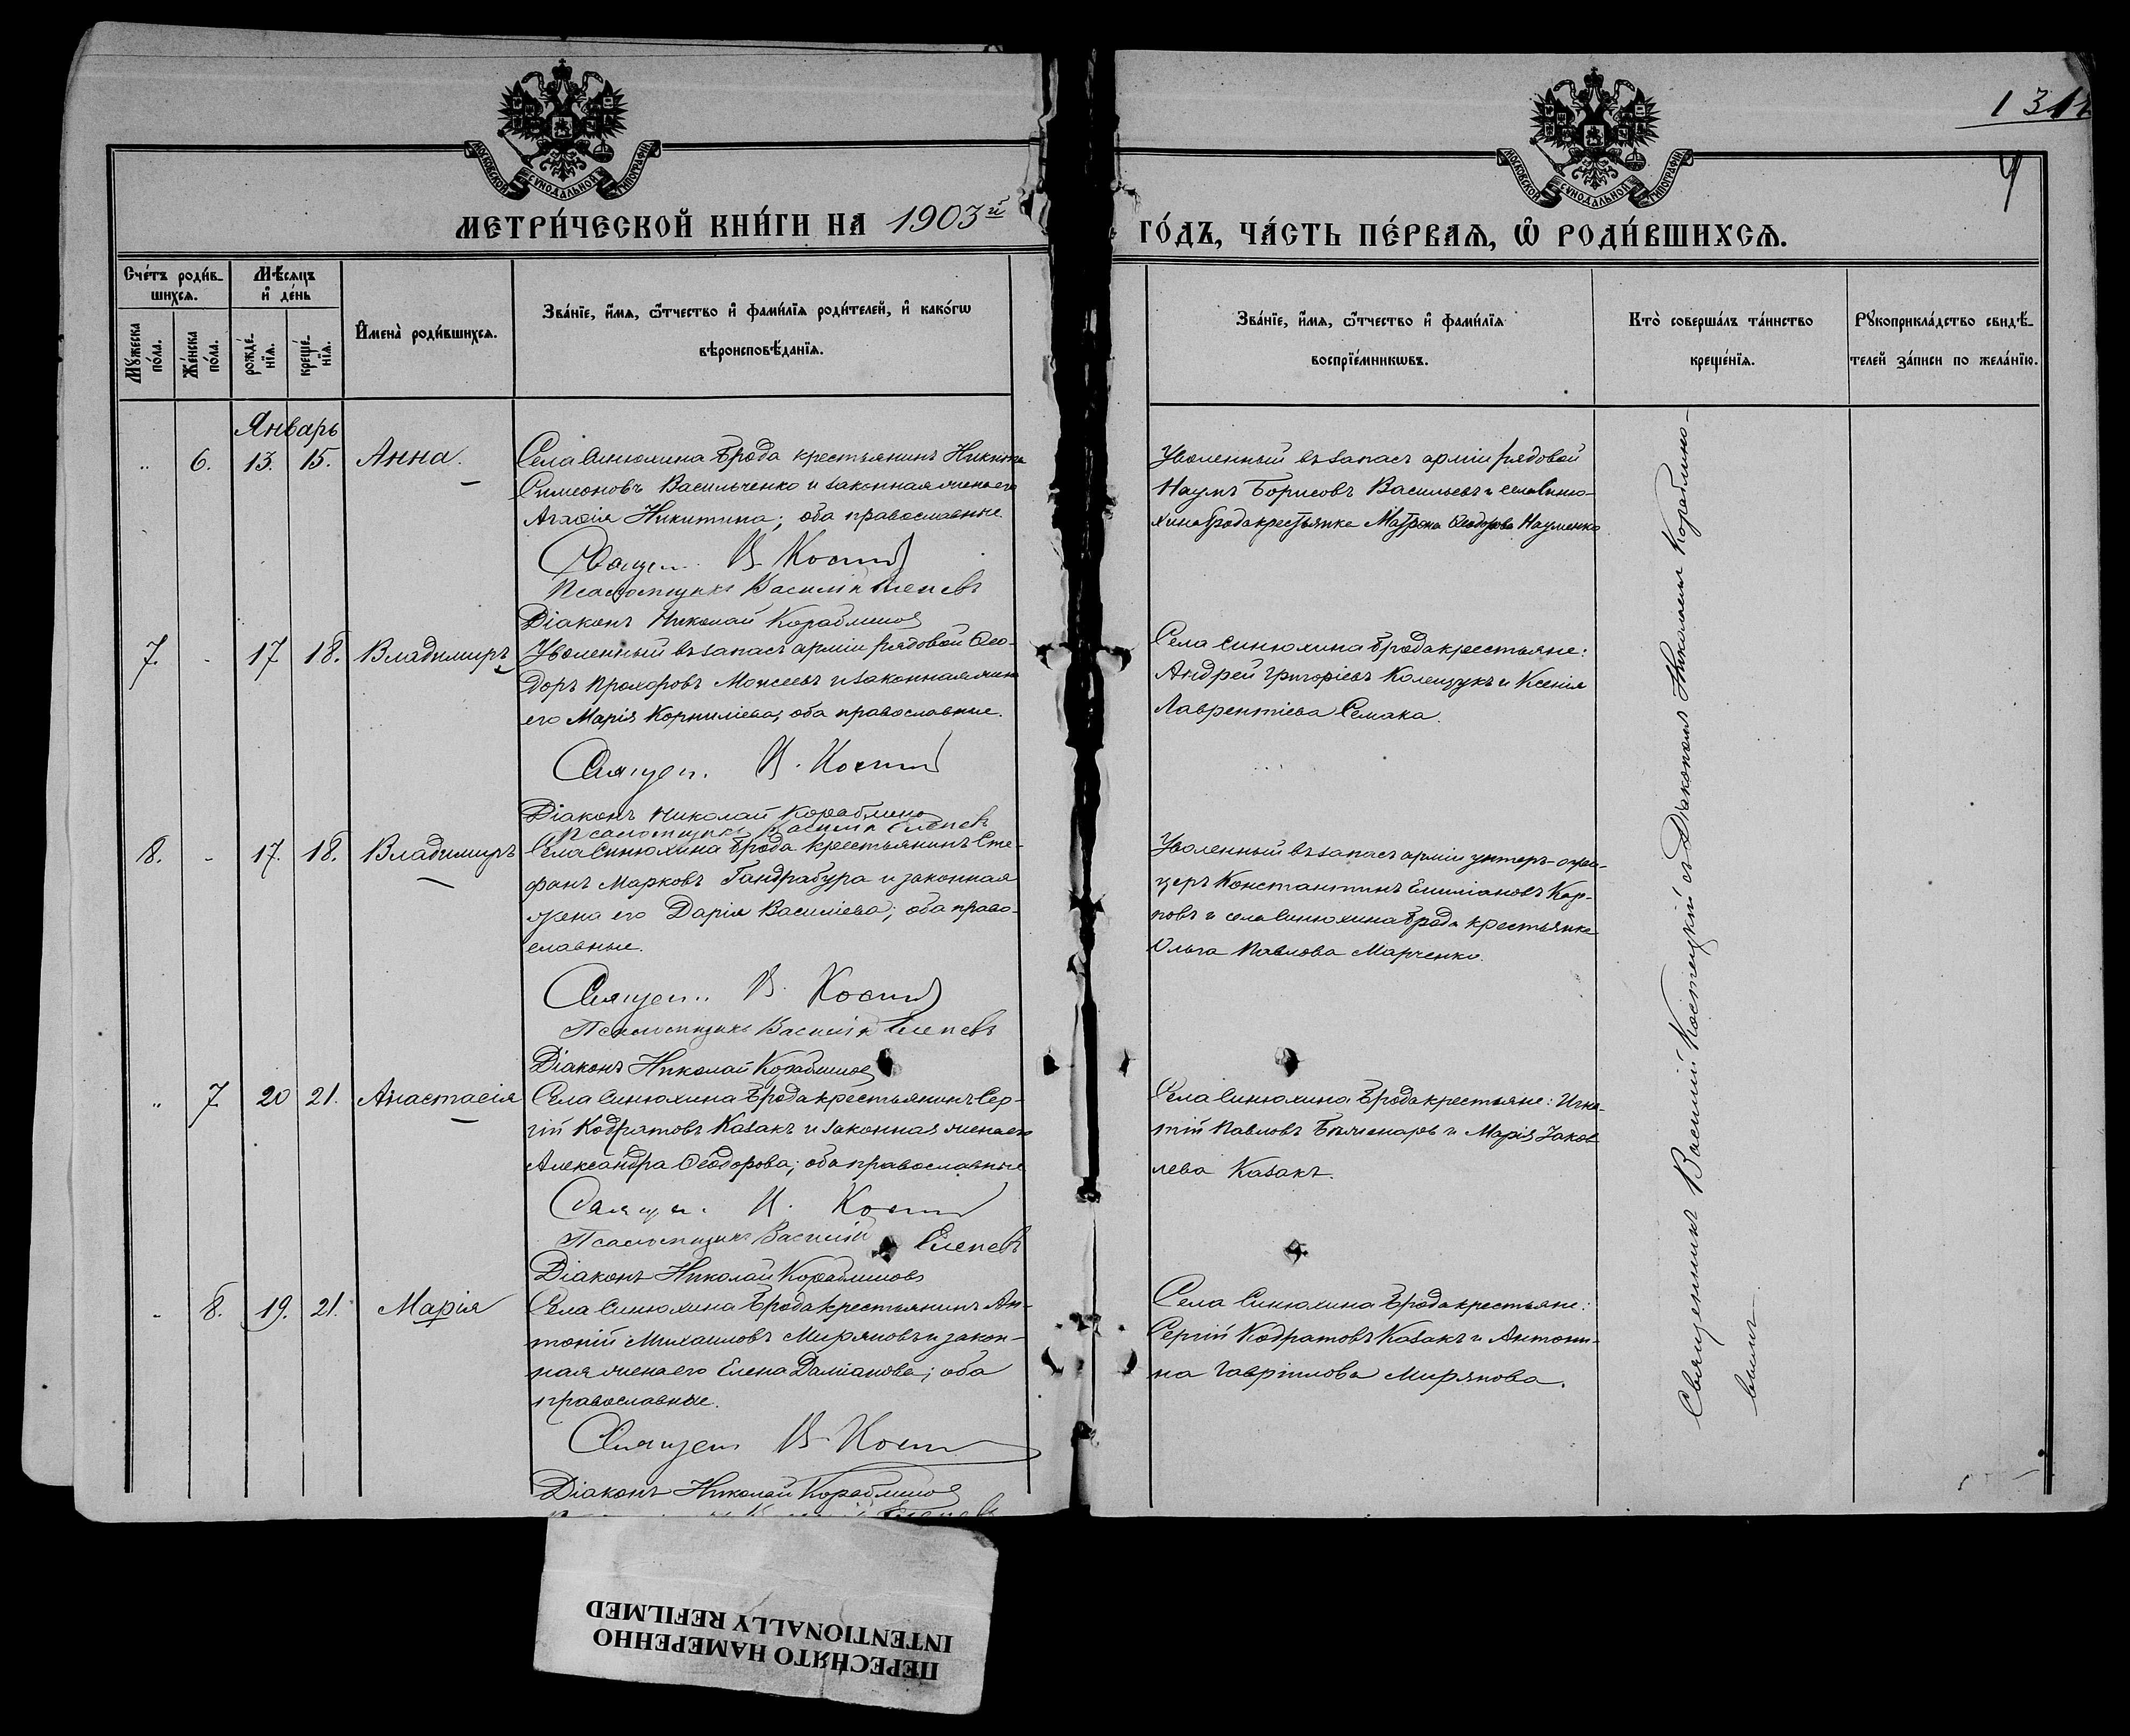 МОСКОВСКОЙ СѴНОДАЛЬНОЙ ТИПОГРАФІИ
МОСКОВСКОЙ СѴНОДАЛЬНОЙ ТИПОГРАФІИ
131
4
МЕТРИ́ЧЕСКОЙ КНИ́ГИ НА 1903й
ГО́ДЪ, ЧА́СТЬ ПЕ́РВАѦ, Ѡ҆ РОДИ́ВШИХСѦ.
Сче́тъ роди́в-
шихсѧ.
Мѣ́сѧцъ
и҆ де́нь
Мꙋ́жеска
по́ла.
Же́нска
по́ла.
рожде́-
нїѧ.
креще́-
нїѧ.
И҆мена̀ роди́вшихсѧ.
Зва́нїе, и҆́мѧ, ѻ҆́тчество и҆ фами́лїѧ роди́телей, и҆ како́гѡ
вѣроисповѣ́данїѧ.
Зва́нїе, и҆́мѧ, ѻ҆́тчество и҆ фами́лїѧ
воспрїе́мникѡвъ.
Кто̀ соверша́лъ та́инство
креще́нїѧ.
Рꙋкоприкла́дство свидѣ́-
телей за́писи по жела́нїю.
Январь
" 6. 13. 15. Анна.
Села Синюхина Брода крестьянинъ Никита
Симеоновъ Васильченко и законная жена его
Агафія Никитина; оба православные.
Священ. В. Кост
Псаломщикъ Василій Елепевъ
Діаконъ Николай Кораблиновъ
Уволенный въ запасъ арміи рядовой
Наумъ Борисовъ Васильевъ и села Синю-
хина Брода крестьянка Матрона Ѳеодорова Науменко
7. - 17 18. Владимиръ
Уволенный въ запасъ арміи рядовой Ѳео-
доръ Прохоровъ Моисеевъ и законная жена
его Марія Корниліева; оба православные.
Священ. В. Кост
Діаконъ Николай Кораблиновъ
Псаломщикъ Василій Елепевъ
Села Синюхина Брода крестьяне:
Андрей Григоріевъ Колещукъ и Ксенія
Лаврентіева Семака.
8. - 17. 18. Владимиръ
Села Синюхина Брода крестьянинъ Сте-
фанъ Марковъ Гандрабура и законная
жена его Дарія Василіева; оба право-
славные.
Священ. В. Кост
Псаломщикъ Василій Елепевъ
Діаконъ Николай Кораблиновъ
Уволенный въ запасъ арміи унтеръ-офи-
церъ Константинъ Емиліановъ Кар-
повъ и села Синюхина Брода крестьянка
Ольга Павлова Марченко.
" 7. 20 21. Анастасія
Села Синюхина Брода крестьянинъ Сер-
гій Кодратовъ Казакъ и законная жена его
Александра Ѳеодорова; оба православные
Священ. В. Кост
Псаломщикъ Василій Елепевъ
Діаконъ Николай Кораблиновъ
Села Синюхина Брода крестьяне: Игна-
тій Павловъ и Марія Іаков
лева Казакъ.
- 8. 19. 21. Марія
Села Синюхина Брода крестьянинъ Ан-
тоній Михаиловъ Миряновъ и закон-
ная жена его Елена Даміанова; оба
православные.
Священ. В. Кост
Діаконъ Николай Кораблиновъ
Села Синюхина Брода крестьяне:
Сергій Кодратовъ Казакъ и Антони-
на Гавріилова Мирянова.
Священникъ Василій Костецкій съ Діакономъ Николаемъ Кораблино-
вымъ
ПЕРЕСНЯТО НАМЕРЕННО
INTENTIONALLY REFILMED